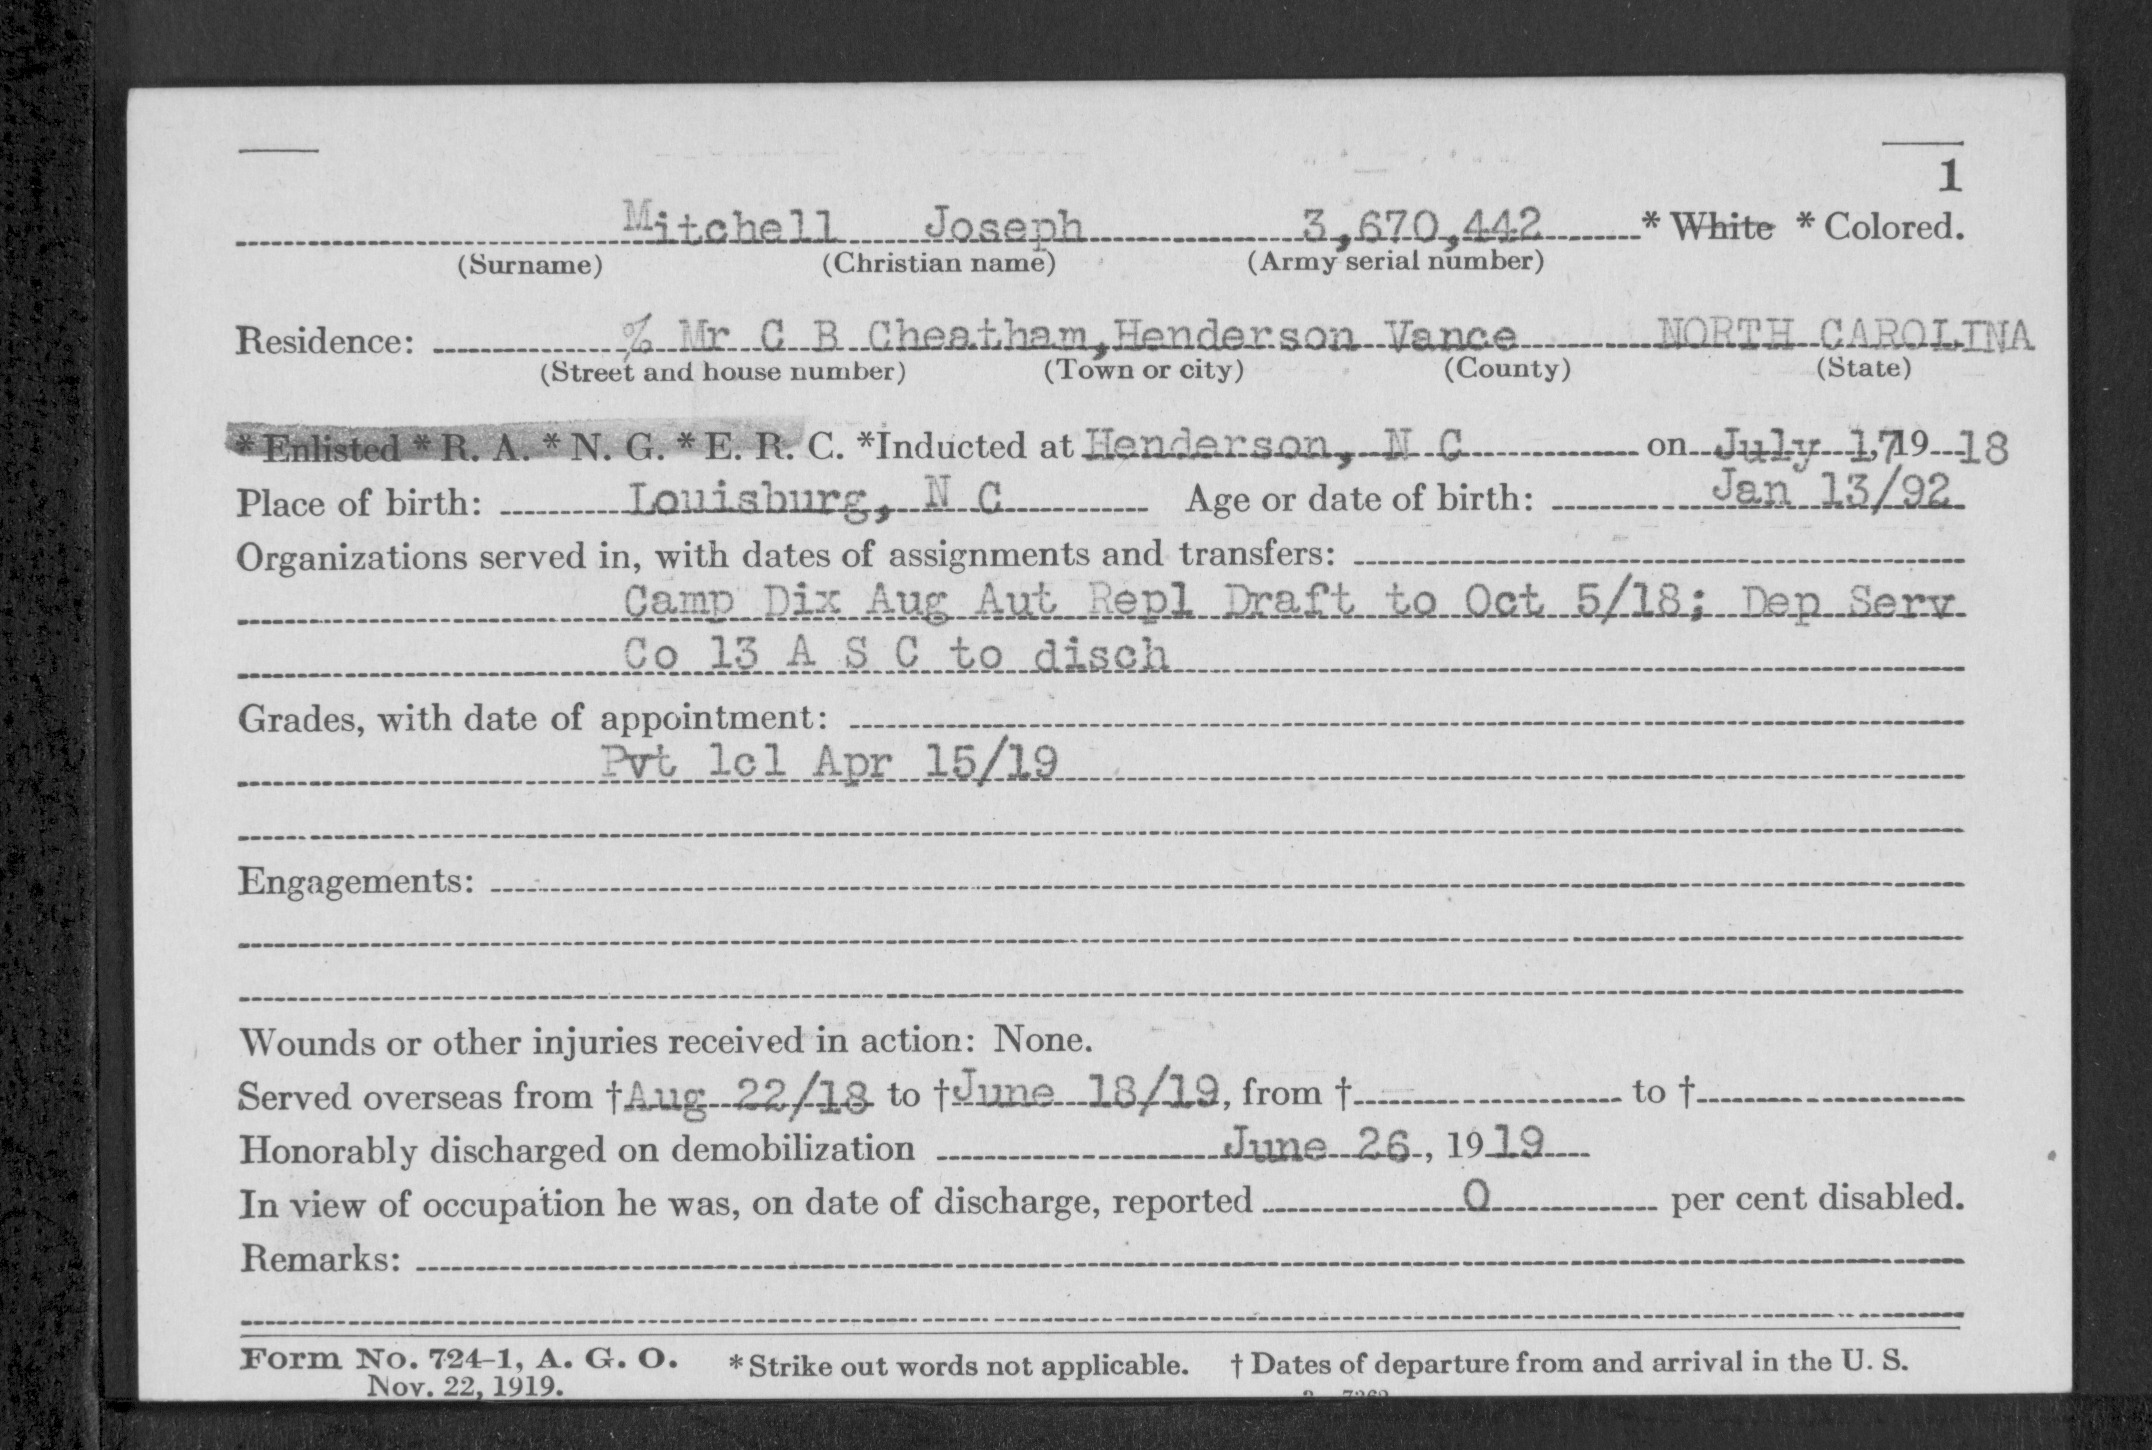 1
Mitchell Joseph 3,670,442 * White * Colored.
(Surname) (Christian name) (Army serial number)
Residence: % Mr C B Cheatham, Henderson Vance NORTH CAROLINA
(Street and house number) (Town or city) (County) (State)
* Enlisted * R. A. * N. G. * E. R. C. *Inducted at Henderson, N C on July 17, 19 18
Place of birth: Louisburg, N C Age or date of birth: Jan 13/92
Organizations served in, with dates of assignments and transfers:
Camp Dix Aug Aut Repl Draft to Oct 5/18; Dep Serv
Co 13 A S C to disch
Grades, with date of appointment:
Pvt 1cl Apr 15/19
Engagements:
Wounds or other injuries received in action: None.
Served overseas from † Aug 22/18 to † June 18/19, from † to †
Honorably discharged on demobilization June 26, 1919
In view of occupation he was, on date of discharge, reported 0 per cent disabled.
Remarks:
Form No. 724-1, A. G. O. * Strike out words not applicable. † Dates of departure from and arrival in the U. S.
Nov. 22, 1919.